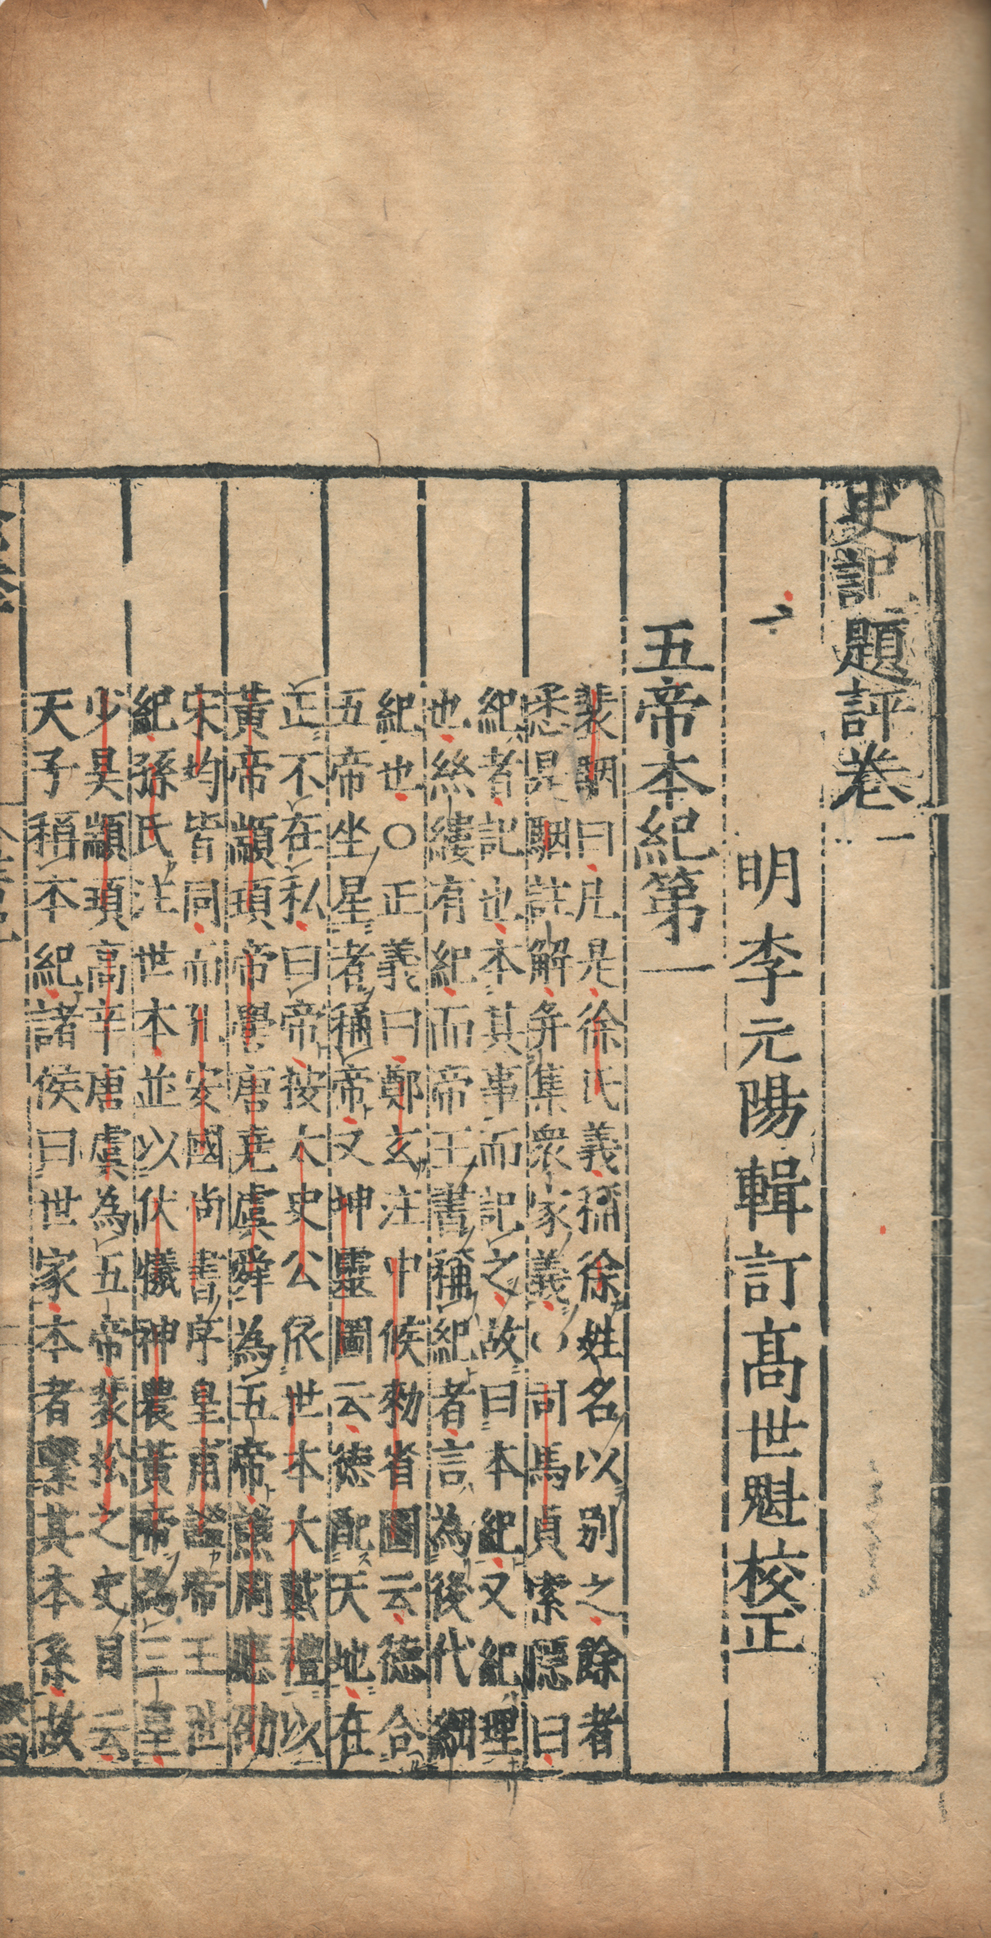 史記題評卷一
明李元陽輯訂高世魁校正
五帝本紀第一
裴駰曰凡是徐氏義稱徐姓名以別之餘者
悉是駰註解并集衆家義○司馬貞索隱曰
紀者記也本其事而記之故曰本紀又紀理
也絲縷有紀而帝王書稱紀者言為後代綱
紀也○正義曰鄭玄注中候勑省圖云德合
五帝坐星者稱帝又坤靈圖云德配天地在
正不在私曰帝按太史公依世本大戴禮以
黃帝顓頊帝嚳唐堯虞舜為五帝譙周應劭
宋均皆同而孔安國尚書序皇甫謐帝王世
紀孫氏注世本並以伏犧神農黃帝為三皇
少昊顓頊高辛唐虞為五帝裴松之史目云
天子稱本紀諸侯曰世家本者繫其本系故